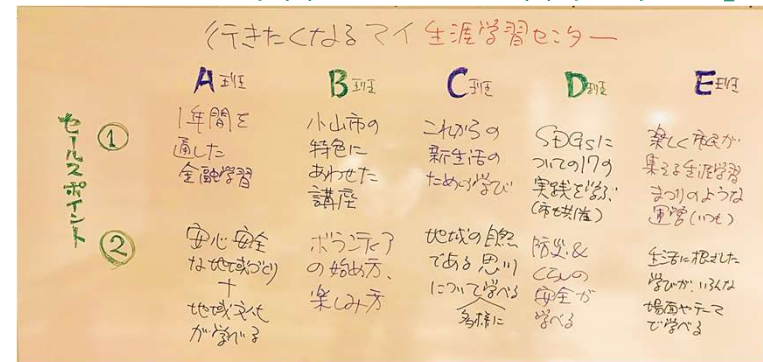 行きたくなるマイ生涯学習センター
A班 B班 C班 D班 E班
セールスポイント
①
1年間を
通した
金融学習
小山市の
特色に
あわせた
講座
これからの
新生活の
ための学び
SDGsに
ついての17の
実践を学ぶ
(市共催)
楽しく市民が
集える生涯学習
まつりのような
運営(いつも)
②
安心安全
な地域づくり
+
地域文化
が学べる
ボランティア
の始め方、
楽しみ方
地域の自然
である思川
について学べる
多様に
防災&
くらしの
安全が
学べる
生活に根ざした
学びが、いろんな
場面やテーマ
で学べる